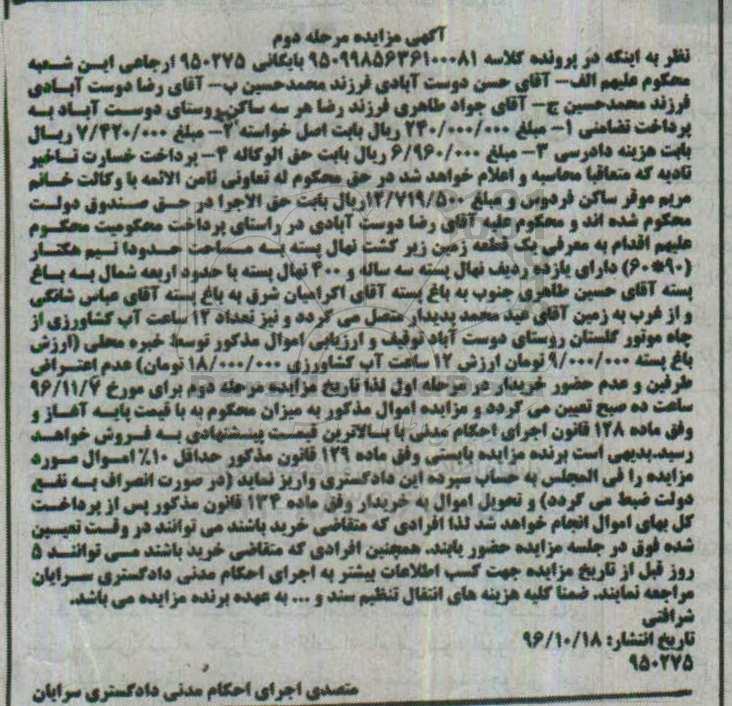 آگهی مزایده مرحله دوم
نظر به اینکه در پرونده کلاسه ۹۵۰۹۹۸۵۶۳۶۱۰۰۰۸۱ بایگانی ۹۵۰۲۷۵ ارجاعی این شعبه
محکوم علیهم الف- آقای حسن دوست آبادی فرزند محمدحسین ب- آقای رضا دوست آبادی
فرزند محمدحسین ج- آقای جواد طاهری فرزند رضا هر سه ساکن روستای دوست آباد به
پرداخت تضامنی ۱- مبلغ ۲۴۰/۰۰۰/۰۰۰ ریال بابت اصل خواسته ۲- مبلغ ۷/۴۲۰/۰۰۰ ریال
بابت هزینه دادرسی ۳- مبلغ ۶/۹۶۰/۰۰۰ ریال بابت حق الوکاله ۴- پرداخت خسارت تاخیر
تادیه که متعاقبا محاسبه و اعلام خواهد شد در حق محکوم له تعاونی ثامن الائمه با وکالت خانم
مریم موقر ساکن فردوس و مبلغ ۱۲/۷۱۹/۵۰۰ریال بابت حق الاجرا در حق صندوق دولت
محکوم شده اند و محکوم علیه آقای رضا دوست آبادی در راستای پرداخت محکومیت محکوم
علیهم اقدام به معرفی یک قطعه زمین زیر کشت نهال پسته به مساحت حدودا نیم هکتار
(۹۰*۶۰) دارای یازده ردیف نهال پسته سه ساله و ۴۰۰ نهال پسته با حدود اربعه شمال به باغ
پسته آقای حسین طاهری جنوب به باغ پسته آقای اکرامیان شرق به باغ پسته آقای عباس شانکی
و از غرب به زمین آقای عید محمد پدیدار متصل می گردد و نیز تعداد ۱۲ ساعت آب کشاورزی از
چاه موتور گلستان روستای دوست آباد توقیف و ارزیابی اموال مذکور توسط خبره محلی (ارزش
باغ پسته ۹/۰۰۰/۰۰۰ تومان ارزش ۱۲ ساعت آب کشاورزی ۱۸/۰۰۰/۰۰۰ تومان) عدم اعتراض
طرفین و عدم حضور خریدار در مرحله اول لذا تاریخ مزایده مرحله دوم برای مورخ ۹۶/۱۱/۷
ساعت ده صبح تعیین می گردد و مزایده اموال مذکور به میزان محکوم به با قیمت پایه آغاز و
وفق ماده ۱۲۸ قانون اجرای احکام مدنی با بالاترین قیمت پیشنهادی به فروش خواهد
رسید.بدیهی است برنده مزایده بایستی وفق ماده ۱۲۹ قانون مذکور حداقل ۱۰٪ اموال مورد
مزایده را فی المجلس به حساب سپرده این دادگستری واریز نماید (در صورت انصراف به نفع
دولت ضبط می گردد) و تحویل اموال به خریدار وفق ماده ۱۳۴ قانون مذکور پس از پرداخت
کل بهای اموال انجام خواهد شد لذا افرادی که متقاضی خرید باشند می توانند در وقت تعیین
شده فوق در جلسه مزایده حضور یابند. همچنین افرادی که متقاضی خرید باشند می توانند ۵
روز قبل از تاریخ مزایده جهت کسب اطلاعات بیشتر به اجرای احکام مدنی دادگستری سرایان
مراجعه نمایند. ضمنا کلیه هزینه های انتقال تنظیم سند و ... به عهده برنده مزایده می باشد.
شرافتی
تاریخ انتشار: ۹۶/۱۰/۱۸
۹۵۰۲۷۵
متصدی اجرای احکام مدنی دادگستری سرایان